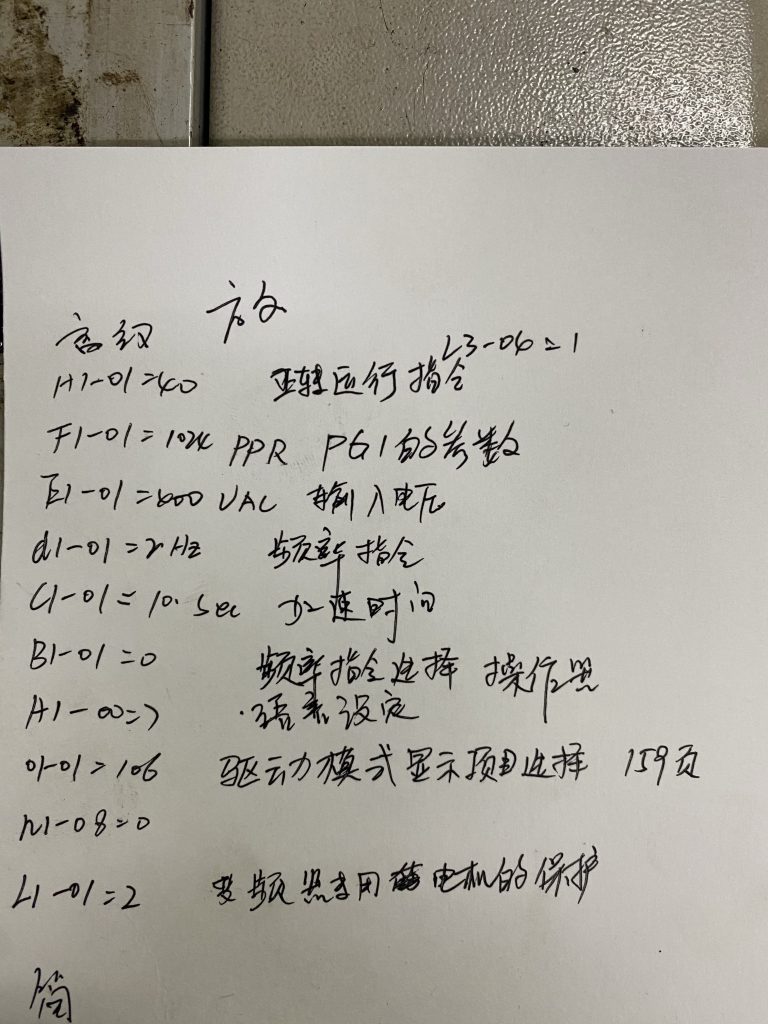 放
高级
L3-04=1
H1-01=40 正转运行指令
F1-01=1024 PPR PG1的参数
E1-01=400 VAC 输入电压
d1-01=2Hz 频率指令
C1-01=10.Sec 加速时间
B1-01=0 频率指令选择 操作器
A1-00=7 语言设定
01-01=106 驱动模式显示项目选择 159页
n1-08=0
L1-01=2 变频器专用电机的保护
简